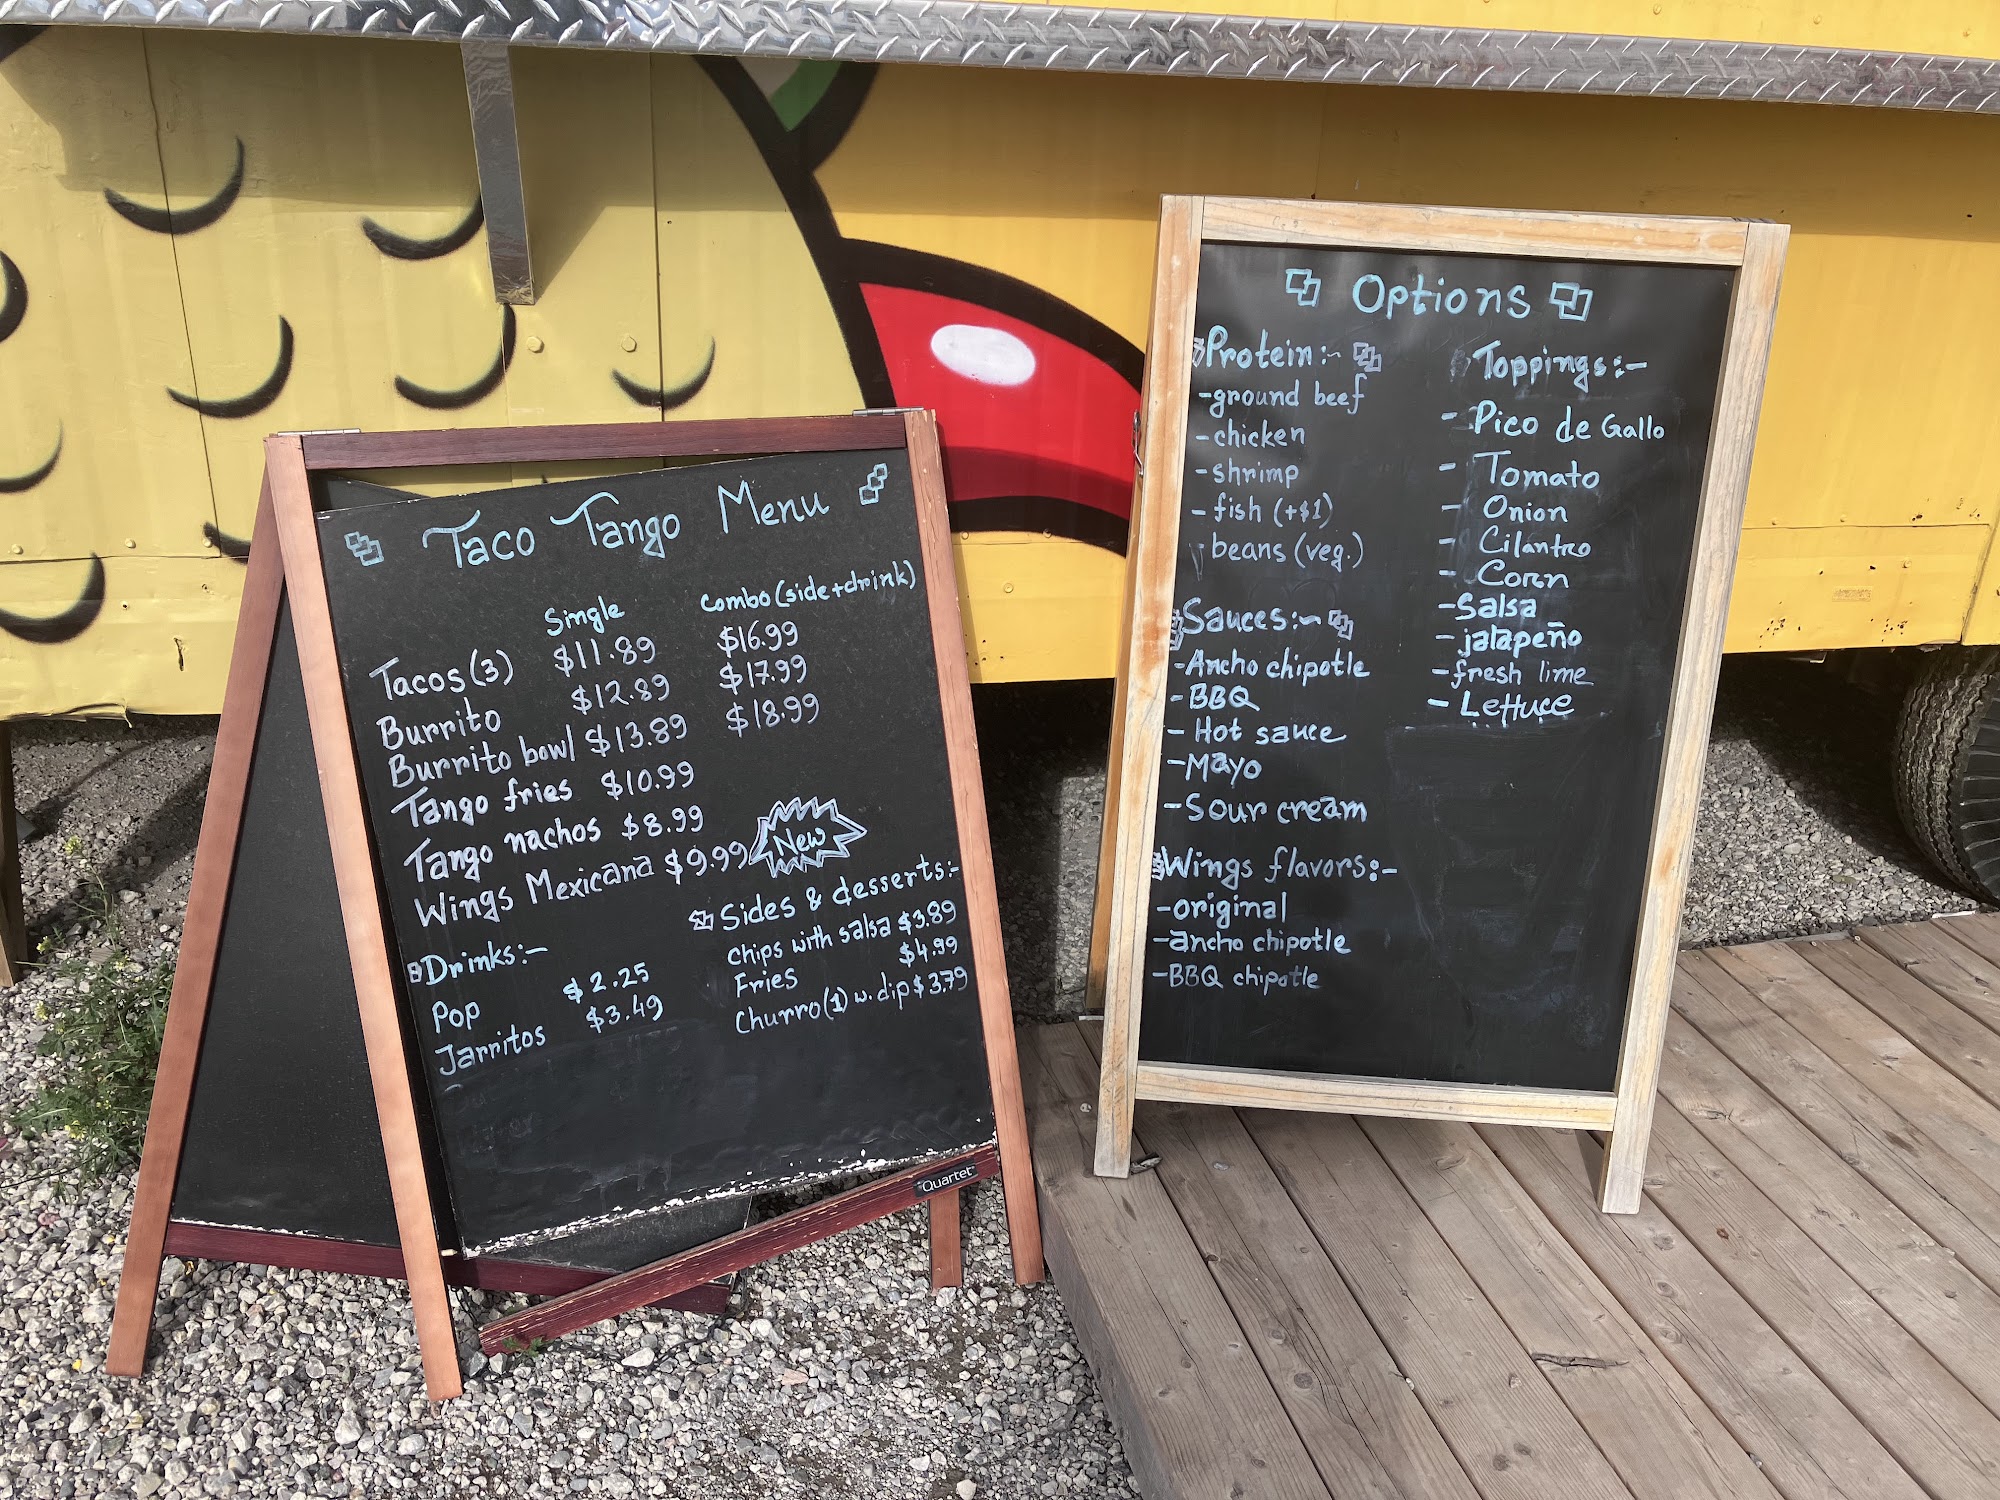 Taco Tango Menu
Single Combo (side+drink)
Tacos (3) $11.89 $16.99
Burrito $12.89 $17.99
Burrito bowl $13.89 $18.99
Tango fries $10.99
Tango nachos $8.99
Wings Mexicana $9.99 New
Drinks:-
Pop $2.25
Jarritos $3.49
Sides & desserts:-
chips with salsa $3.89
Fries $4.99
Churro (1) w. dip $3.79
Quartet
Options
Protein:-
- ground beef
- chicken
- shrimp
- fish (+$1)
- beans (veg.)
Sauces:-
- Ancho chipotle
- BBQ
- Hot sauce
- Mayo
- Sour cream
Wings flavors:-
- original
- ancho chipotle
- BBQ chipotle
Toppings:-
- Pico de Gallo
- Tomato
- Onion
- Cilantro
- Corn
- Salsa
- jalapeño
- fresh lime
- Lettuce